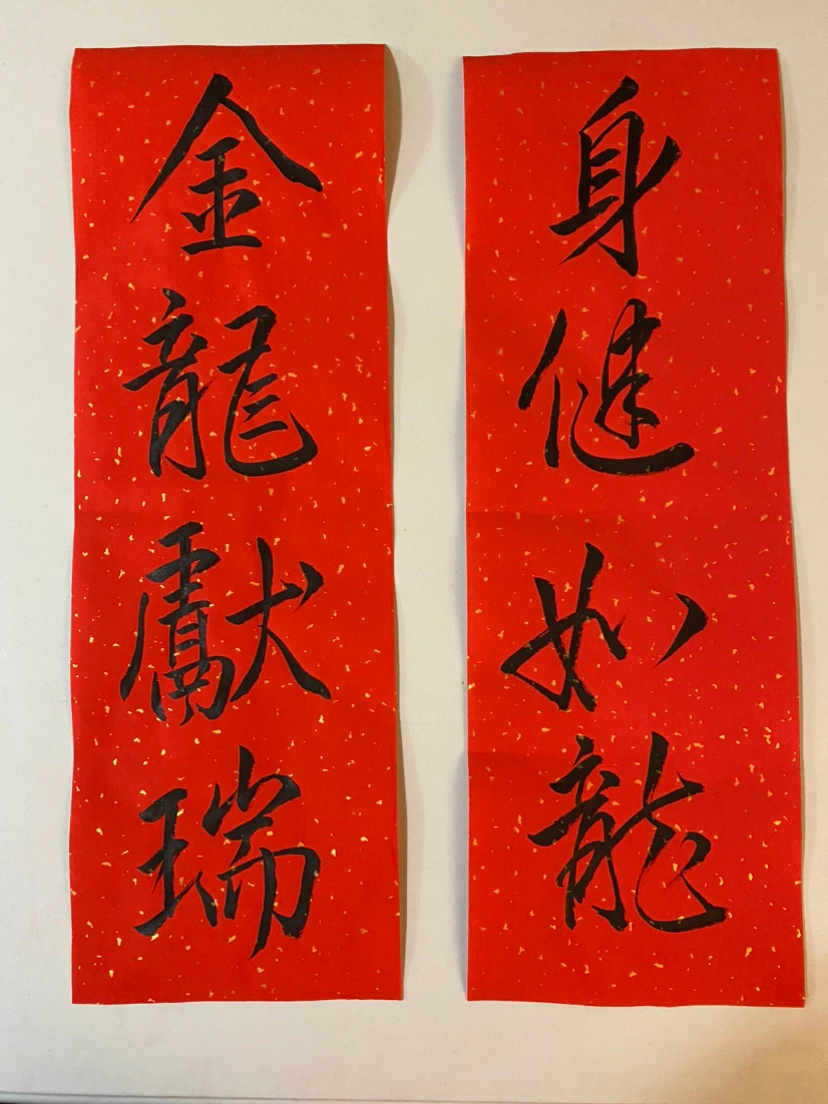 身健如龍
金龍獻瑞